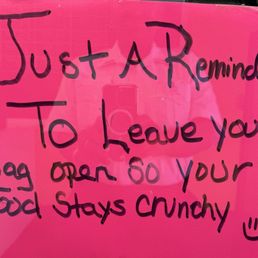 Just A Remind
To Leave you
ag open so your
ood Stays Crunchy